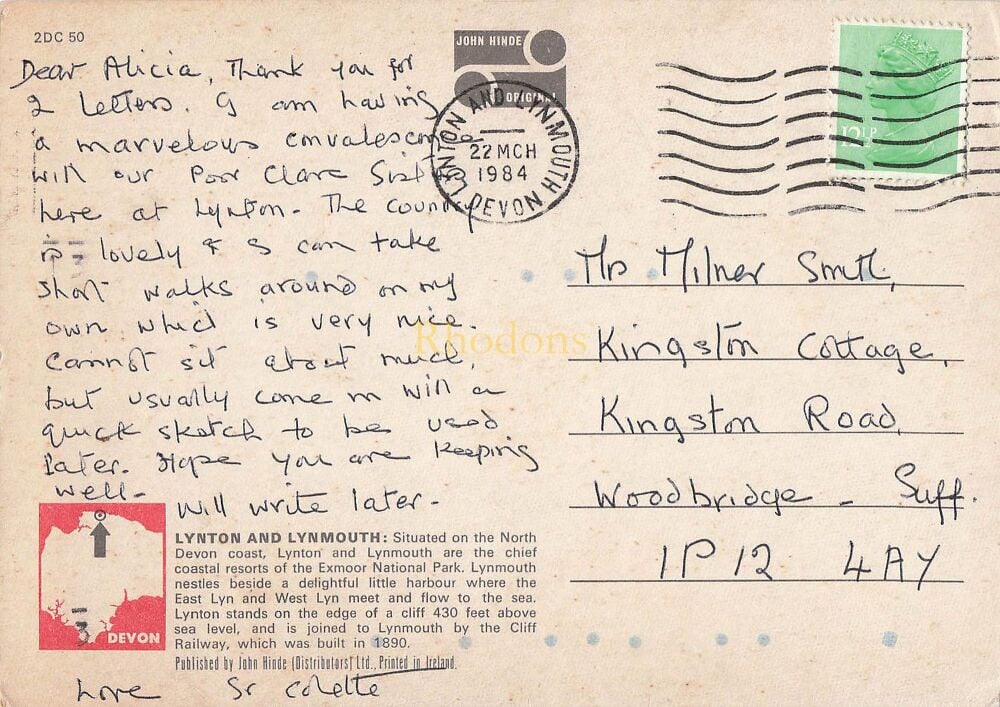 2DC 50
JOHN HINDE
ORIGINAL
Dear Alicia, Thank you for
2 Letters. I am having
a marvelous convalescence
with our Poor Clare Sisters
here at Lynton. The country
is lovely & I can take
short walks around on my
own which is very nice.
Cannot sit about much,
but usually come in with a
quick sketch to be used
later. Hope you are keeping
well-
Will write later-
Love Sr Colette
LYNTON AND LYNMOUTH
22 MCH
1984
DEVON
12½P
Mrs Milner Smith,
Kingston Cottage,
Kingston Road,
Woodbridge - Suff.
IP12 4AY
Rhodons
DEVON
LYNTON AND LYNMOUTH: Situated on the North
Devon coast, Lynton and Lynmouth are the chief
coastal resorts of the Exmoor National Park. Lynmouth
nestles beside a delightful little harbour where the
East Lyn and West Lyn meet and flow to the sea.
Lynton stands on the edge of a cliff 430 feet above
sea level, and is joined to Lynmouth by the Cliff
Railway, which was built in 1890.
Published by John Hinde (Distributors) Ltd., Printed in Ireland.